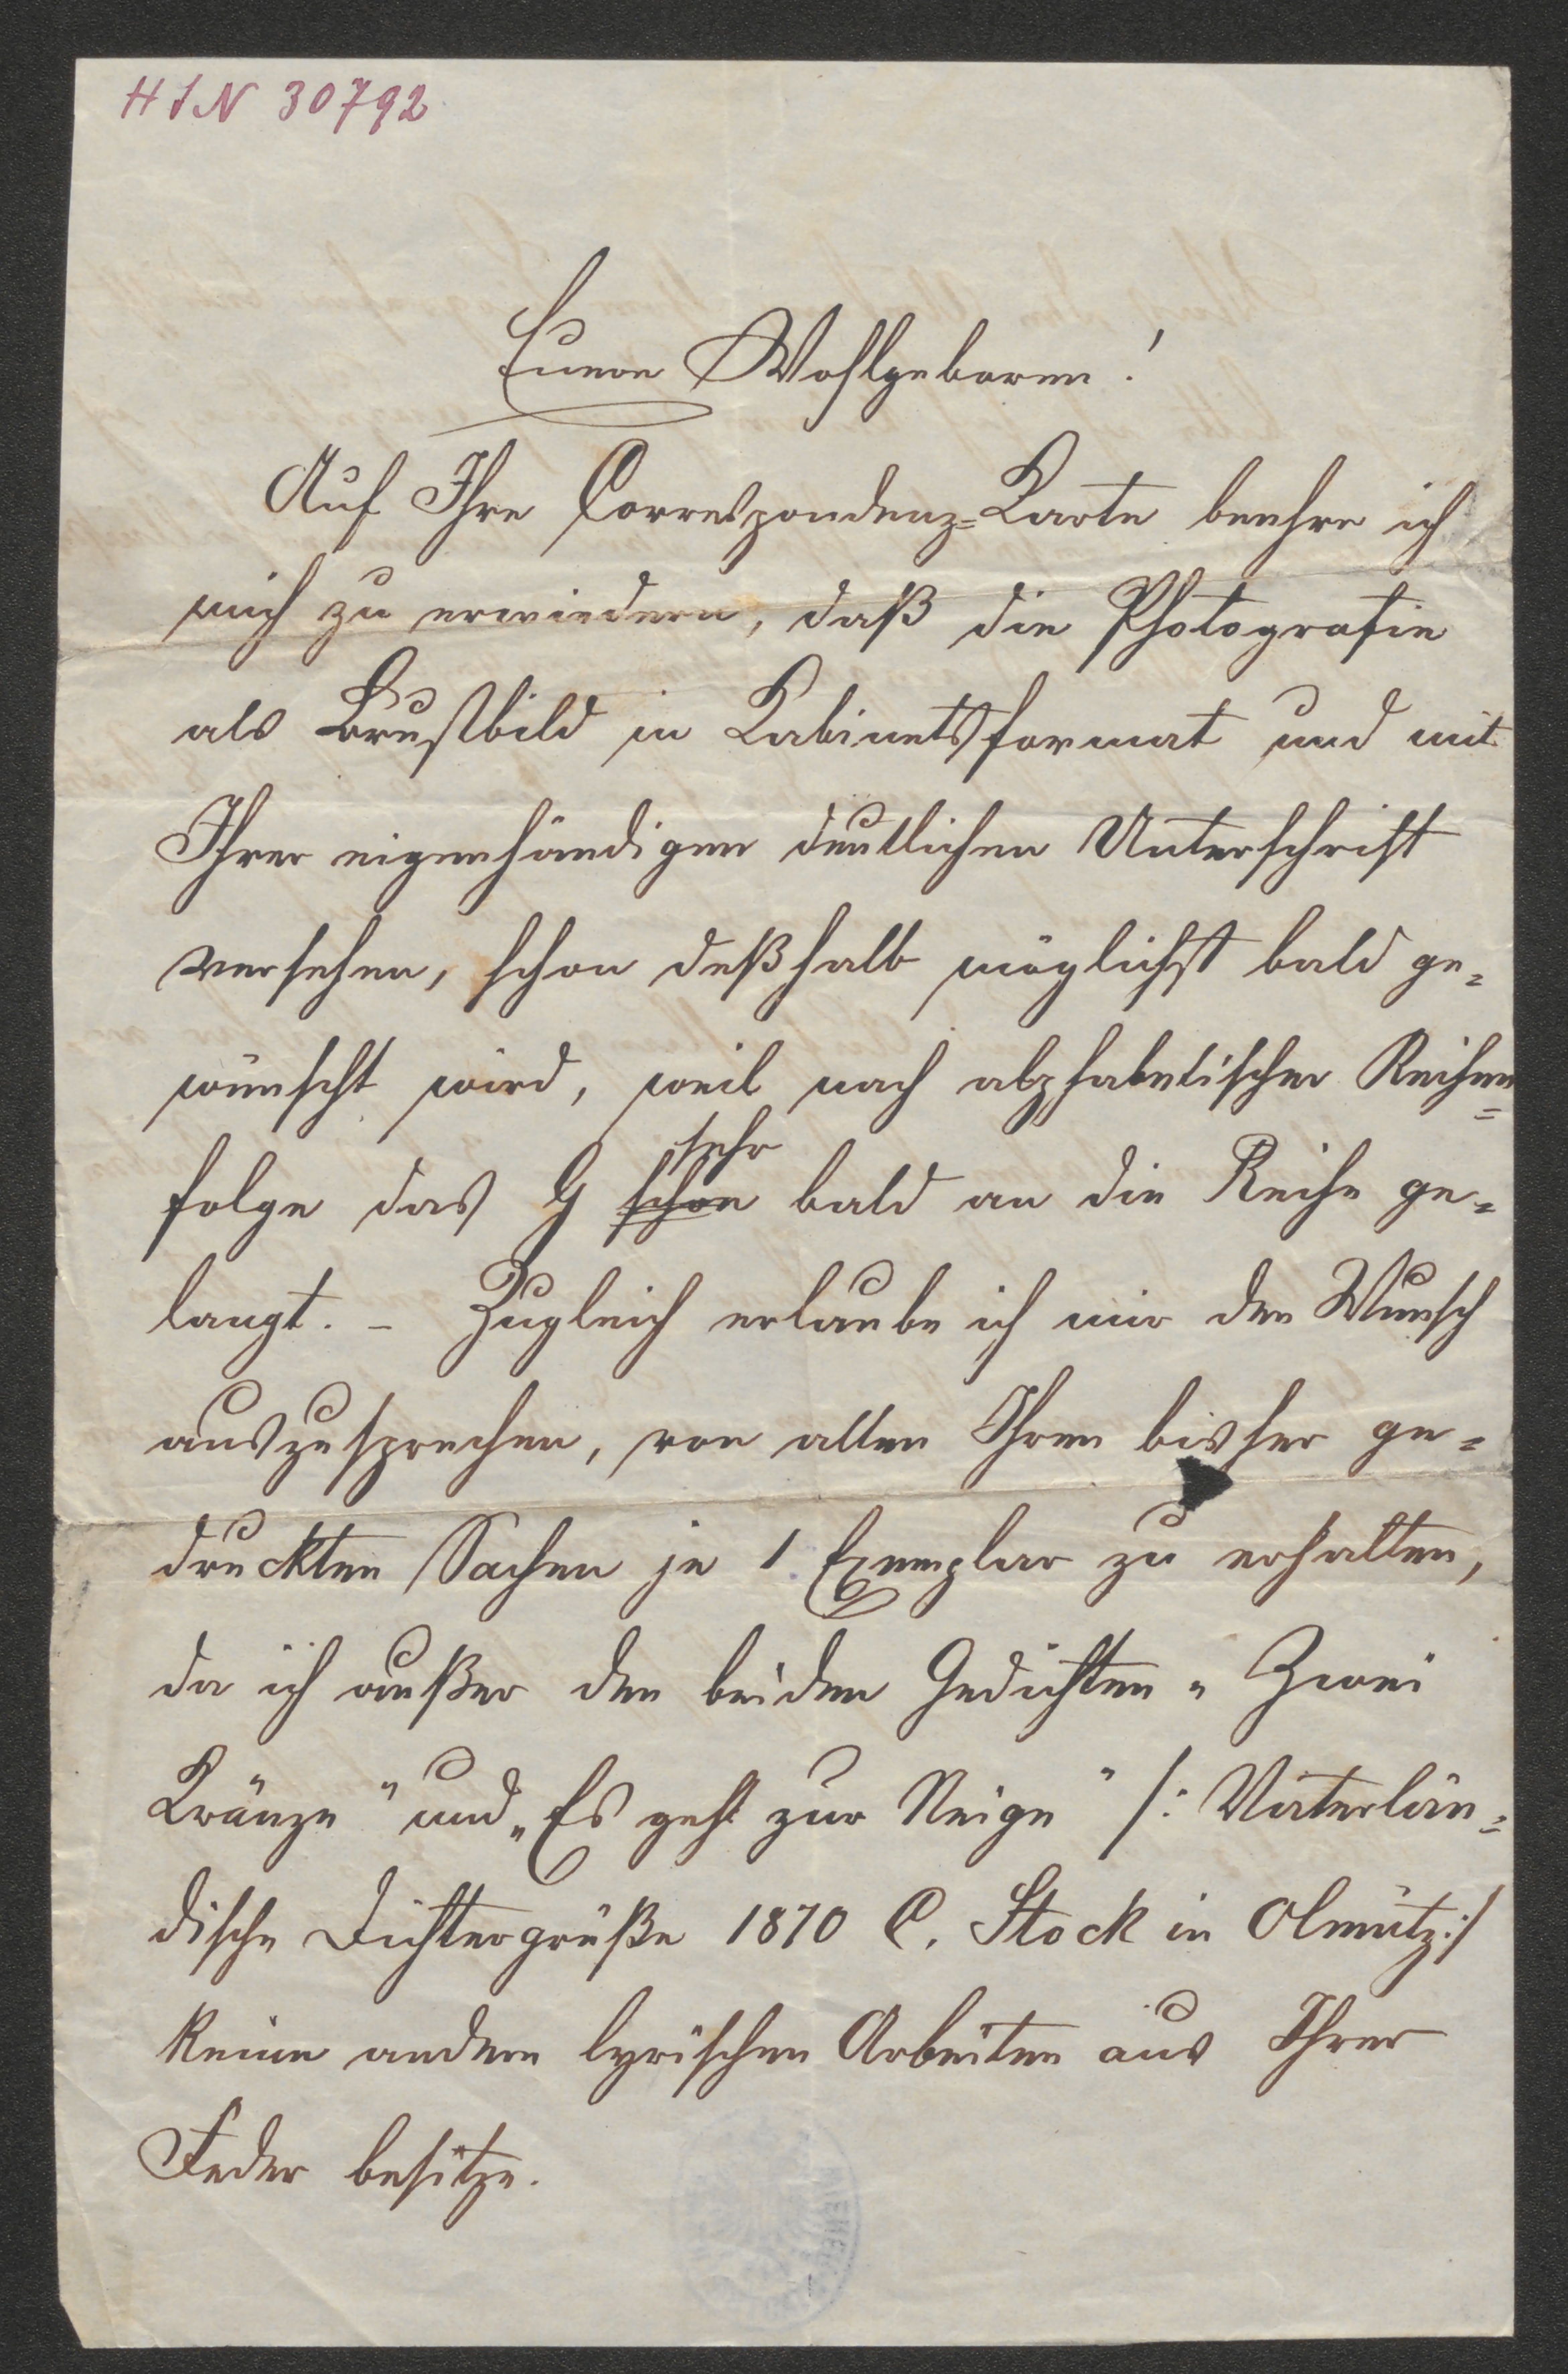 HIN 30792
Euere Wohlgeboren!
Auf Ihre Correspondenz=Karte beehre ich
mich zu erwiedern, daß die Photografie
als Brustbild in Kabinetsformat und mit
Ihrer eigenhändigen deutlichen Unterschrift
versehen, schon deßhalb möglichst bald ge=
wünscht wird, weil nach alphabetischer Reihen=
sehr
folge das G schon bald an die Reihe ge=
langt. – Zugleich erlaube ich mir den Wunsch
auszusprechen, von allen Ihren bisher ge=
druckten Sachen je 1 Exemplar zu erhalten,
da ich außer den beiden Gedichten „Zwei
Kränze" und „Es geht zur Neige" /: Vaterlän=
dische Dichtergrüße 1870 C. Stock in Olmütz :/
keine andern lyrischen Arbeiten aus Ihrer
Feder besitze.